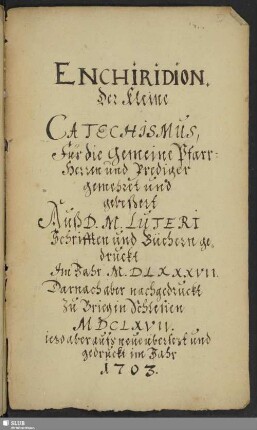 ENCHIRIDION.
Der Kleine
CATECHISMUS,
Für die Gemeine Pfarr-
Herren und Prediger
gemehret und
gebessert
Auß D. M. LUTERI
Schrifften und Büchern ge,
druckt
Im Jahr M. D. LXXXVII.
Darnach aber nachgedruckt
Zu Brieg in Schlesien
MDCLXVII.
ietzo aber aufs neue überlest und
gedruckt im Jahr
1703.
SLUB